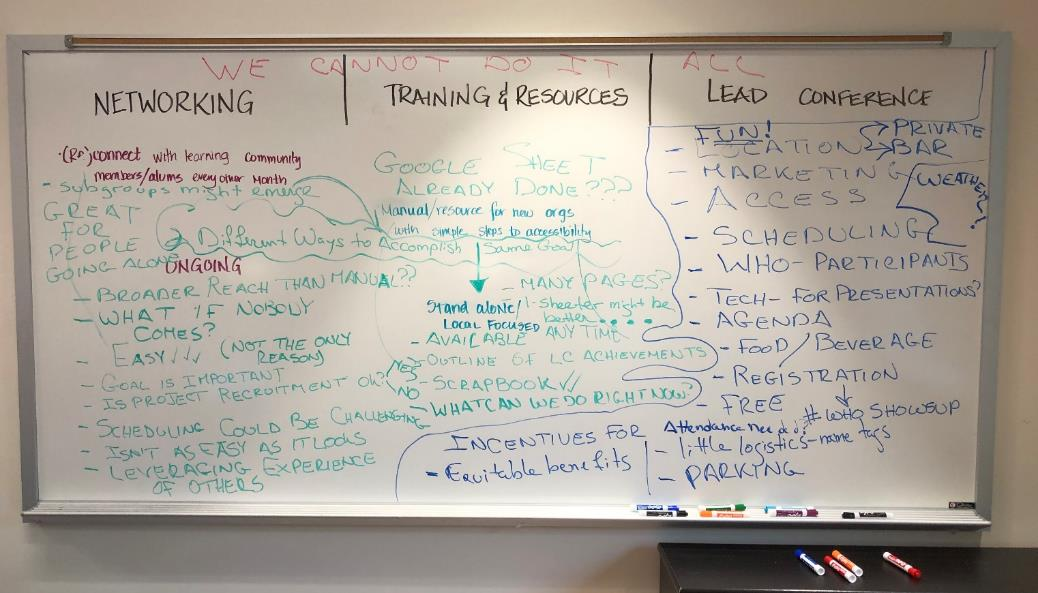 WE CANNOT DO IT ALL
NETWORKING
·(Re)connect with learning community
members/alums every other Month
- subgroups might emerge
GREAT
FOR
PEOPLE
GOING ALONE
2 Different Ways to Accomplish Same Goal
ONGOING
- BROADER REACH THAN MANUAL??
- WHAT IF NOBODY
COMES?
- EASY✓✓✓ (NOT THE ONLY
REASON)
- GOAL IS IMPORTANT
- IS PROJECT RECRUITMENT OK? YES
NO
- SCHEDULING COULD BE CHALLENGING
- ISN'T AS EASY AS IT LOOKS
- LEVERAGING EXPERIENCE
OF OTHERS
TRAINING & RESOURCES
GOOGLE SHEET
ALREADY DONE???
Manual/resource for new orgs
with simple steps to accessibility
- MANY PAGES?
1-sheeter might be
better....
Stand alone/
LOCAL FOCUSED
- AVAILABLE ANY TIME
- OUTLINE OF LC ACHIEVEMENTS
- SCRAPBOOK✓✓
- WHAT CAN WE DO RIGHT NOW?
INCENTIVES FOR
- Equitable benefits
LEAD CONFERENCE
FUN!
- LOCATION → PRIVATE
→ BAR
- MARKETING
WEATHER?
- ACCESS
- SCHEDULING
- WHO - PARTICIPANTS
- TECH - FOR PRESENTATIONS?
- AGENDA
- FOOD/BEVERAGE
- REGISTRATION
- FREE
# WHO SHOWS UP
Attendance
- little logistics - name tags
- PARKING